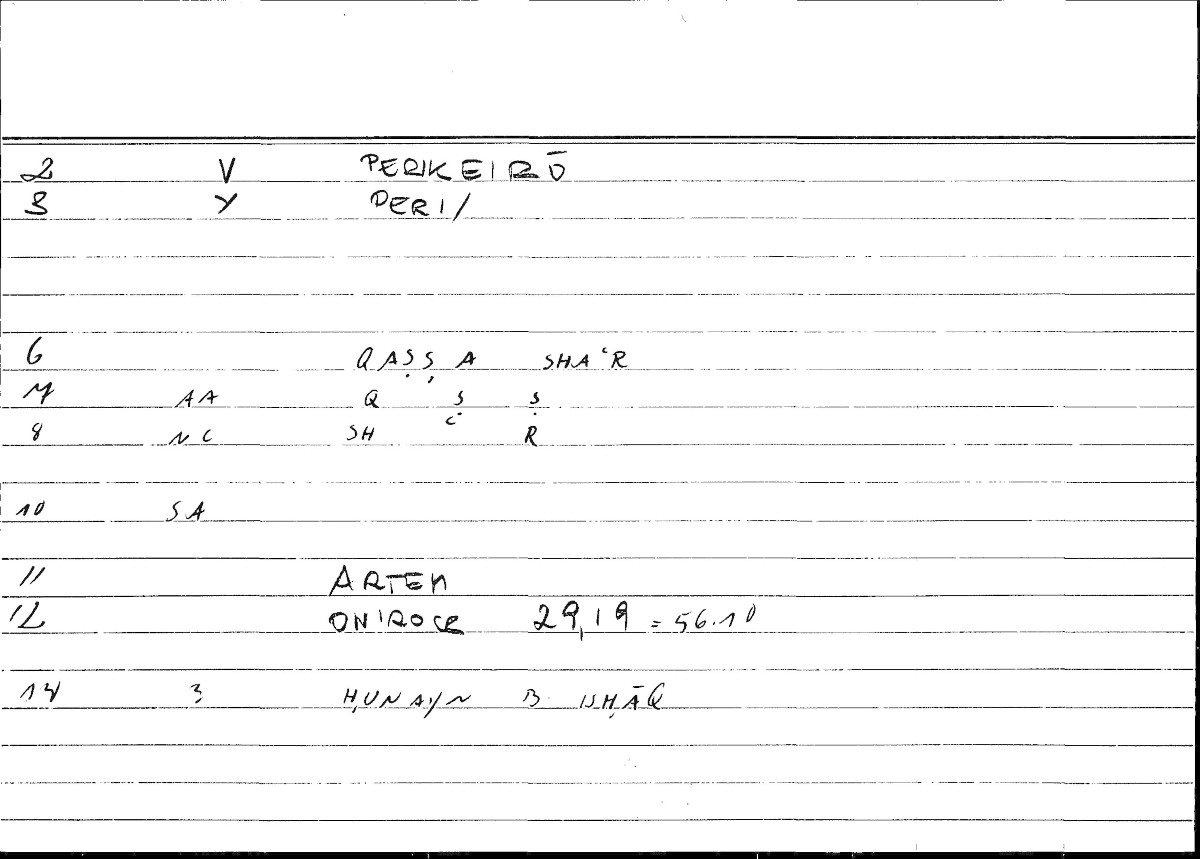 2 V PERIKEIRŌ
3 Y PERI/
6 QAṢṢ A SHAʿR
7 AA Q Ṣ Ṣ
8 NC SH ʿ R
10 SA
11 ARTEM
12 ONIROCR 29,19 = 56.10
14 3 ḤUNAYN B ISḤĀQ